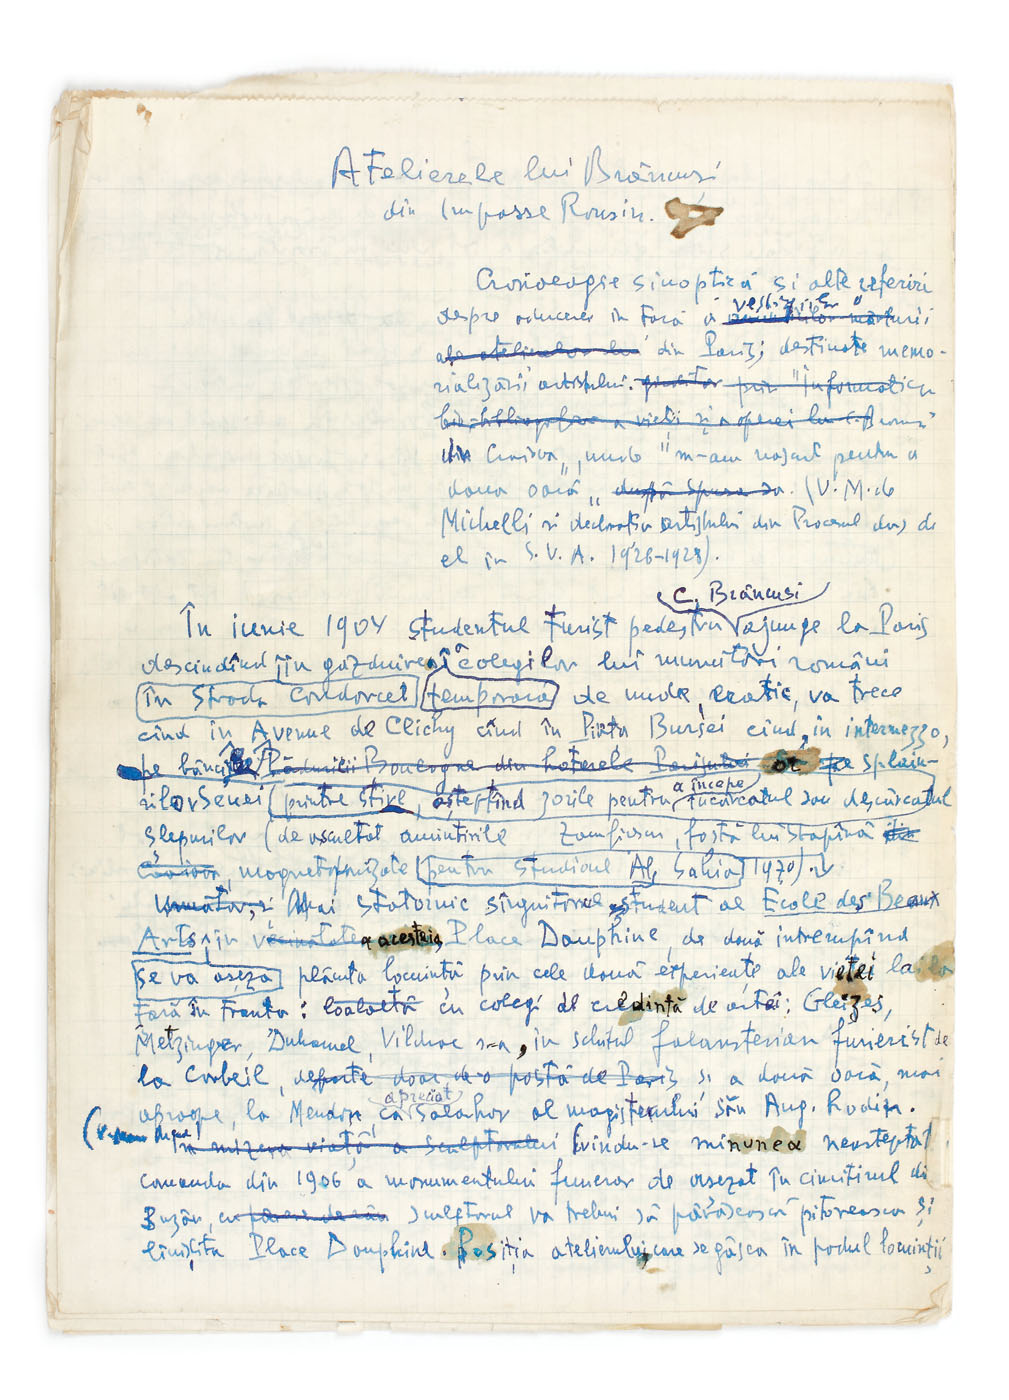 Atelierele lui Brâncuși
din Impasse Ronsin.
Cronologie sinoptică și alte referiri
despre aducerea în țară a vestigiilor
din Paris, destinate memo-
rializării artistului. prin "Informația
bio-bibliografică a vieții și a operei lui C. Brâncuși
din Craiova", unde "m-am născut pentru a
doua oară" după spusa sa. (V. M. de
Michelli și declarația artistului din Procesul dus de
el în S.V.A. 1926-1928).
C. Brâncusi
În iunie 1904 studentul turist pedestru ajunge la Paris
descinzînd în găzduirea colegilor lui numitări români
în Strada Condorcet temporară de unde, va trece
cînd în Avenue de Clichy cînd în Piața Bursei cînd, în intermezzo,
pe băncile Pădurii Boulogne din hotarele Parisului
rilor Senei printre stive, așteptînd zorile pentru a începe încărcatul sau descărcatul
șlepurilor (de ascultat amintirile fostă lui stăpînă din
Craiova, magnetofonizate pentru studioul Al. Sahia 1970).
Mai statornic singuratecul student al Ecole des Beaux
Arts, în vecinatatea acesteia Place Dauphine, de două întrerupînd
se va așeza locuință prin cele două experiențe ale vieții
țară în Franța: cu colegi de credință de artă: Gleizes,
Metzinger, Duhamel, Vildrac ș-a, în schitul falansterian furierist de
la Corbeil, departe doar de-o poștă de Paris și a două oară, mai
aproape, la Meudon, ca apreciat salahor al magistrului său Aug. Rodin.
În mizera viață a sculptorului ivindu-se minunea neașteptat
comanda din 1906 a monumentului funerar de așezat în cimitirul di
Buzău, sculptorul va trebui să părăsească pitoreasca și
liniștita Place Dauphine. Poziția atelierului, care se găsea în podul locuinții